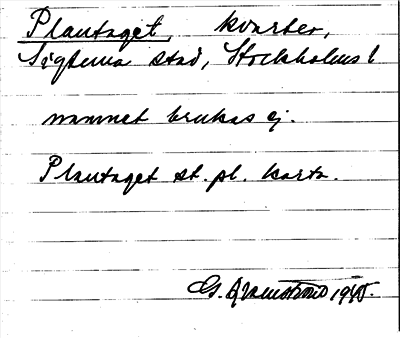 Plantaget, kvarter,
Sigtuna stad, Stockholms l
namnet brukas ej.
Plantaget st. pl. karta.
G. 1945.